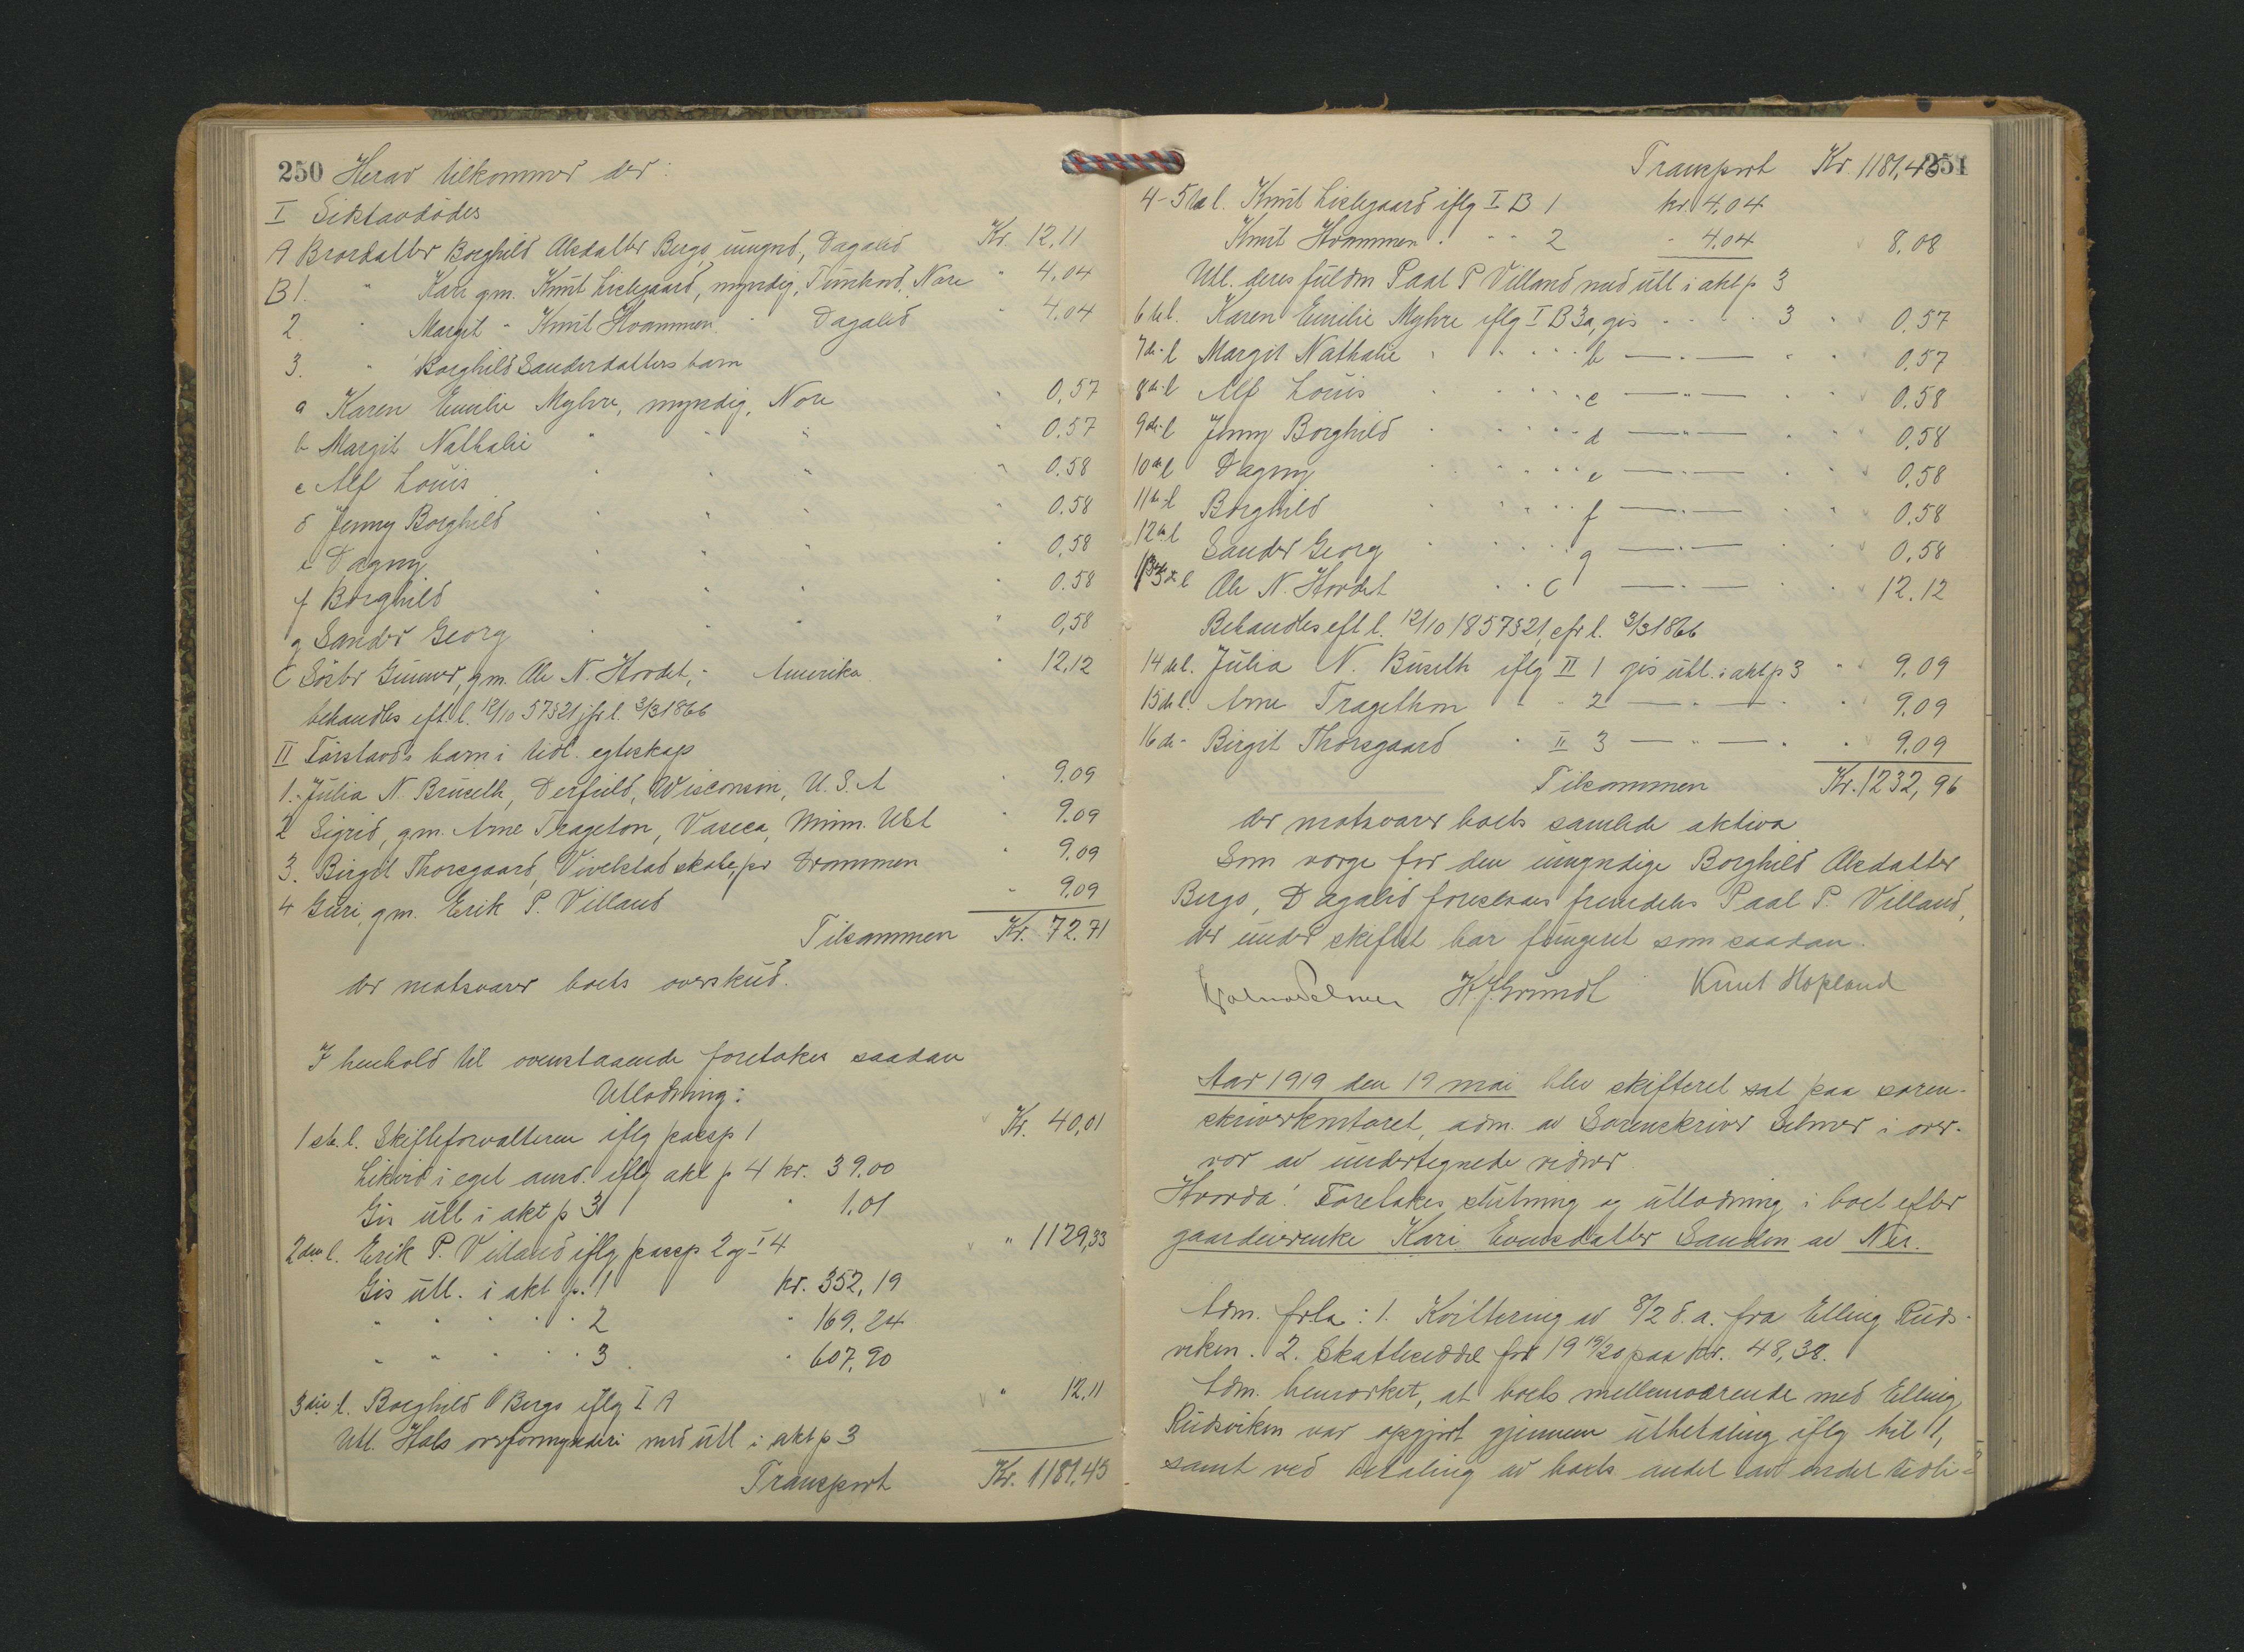 250 Herav tilkommer der:
I Sidstavdødes
A Brordatter Borghild Olesdatter Bergo, umynd., Dagalid Kr. 12,11
B 1. " Kari gm. Knut Lislegaard, myndig, Tunhovd, Nore " 4,04
2. " Margit " Knut Hvammen " Dagalid " 4,04
3. " Borghild Sandersdatters barn
a Karen Emilie Myhre, myndig, Nore " 0,57
b Margit Nathalie " " " " 0.57
c Alf Louis " " " " 0.58
d Jenny Borghild " " " " 0.58
e Dagny " " " " 0,58
f Borghild " " " " 0.58
g Sander Georg " " " " 0,58
C Søster Gunvor, gm. Ole N. Hordet, - Amerika " 12,12
behandles eft. l. 12/10 57 § 21 jfr l. 3/3 1866
II Førstavd's barn i tidl. egteskap
1. Julia N. Bruselth, Derfield, Wisconsin, U.S.A " 9.09
2 Sigrid, gm. Arne Trageton, Vaseca, Minn. USA " 9.09
3. Birgit Thorsgaard, Vivelstad skole, pr Drammen " 9,09
4 Guri, gm. Erik P. Villand " 9,09
Tilsammen Kr. 72.71
der motsvarer boets overskud.
I henhold til ovenstaaende foretokes saadan
Utlodning:
1ste l. Skifteforvalteren iflg passp 1 Kr. 40,01
Likvid i eget anvd. iflg akt p 4 kr. 39.00
Gis utl i akt p 3 " 1.01
2den l. Erik P. Villand iflg passp 2 og II 4 " 1129,33
Gis utl. i akt p. 1 kr. 352,19
" " " " " 2 " 169,24
" " " " " 3 " 607,90
3die l. Borghild O Bergo iflg I A " 12.11
Utl. Hols overformynderi med utl i akt p 3
Transport Kr. 1181.45
251
Transport Kr. 1181,45
4-5te l. Knut Lislegaard iflg I B 1 kr. 4,04
Knut Hvammen " " " 2 " 4.04 " 8,08
Utl. deres fuldm Paal P Villand med utl i akt p 3
6te l. Karen Emilie Myhre iflg I B 3a, gis " " " " 3 " 0,57
7de l Margit Nathalie " " " " b — " — " " 0,57
8de l Alf Louis " " " " c — " — " " 0.58
9de l Jenny Borghild " " " " d — " — " " 0,58
10de l Dagny " " " " e — " — " " 0,58
11te l Borghild " " " " f — " — " " 0,58
12te l Sander Georg " " " " g — " — " " 0,58
13de l Ole N. Hordet " " C — " — " " 12.12
Behandles eft l. 12/10 1857 § 21, cfr l. 3/3 1866
14de l. Julia N. Bruselth iflg II 1 gis utl. i akt p 3 " 9.09
15de l. Arne Tragethon " " 2 — " — " " 9,09
16de - Birgit Thorsgaard " II 3 — " — " " 9,09
Tilsammen Kr. 1232,96
der motsvarer boets samlede aktiva
Som verge for den umyndige Borghild Olesdatter
Bergo, Dagalid foreslaaes fremdeles Paal P. Villand,
der under skiftet har fungeret som saadan.
K J Grundt Knut Hopland
Aar 1919 den 19 mai blev skifteret sat paa soren-
skriverkontoret, adm. av Sorenskriver Selmer i over-
vær av undertegnede vidner.
Hvorda: Foretokes slutning og utlodning i boet efter
gaardeierenke Kari Evensdatter Sanden av Nes.
Adm. frla: 1. Kvittering av 8/2 d.a. fra Elling Ruds-
viken. 2. Skatteseddel for 19 19/20 paa kr. 48,38.
Adm. bemerket, at boets mellemværende med Elling
Rudsviken var opgjort gjennem utbetaling iflg bil 1,
samt ved betaling av boets andel av endel tidli-